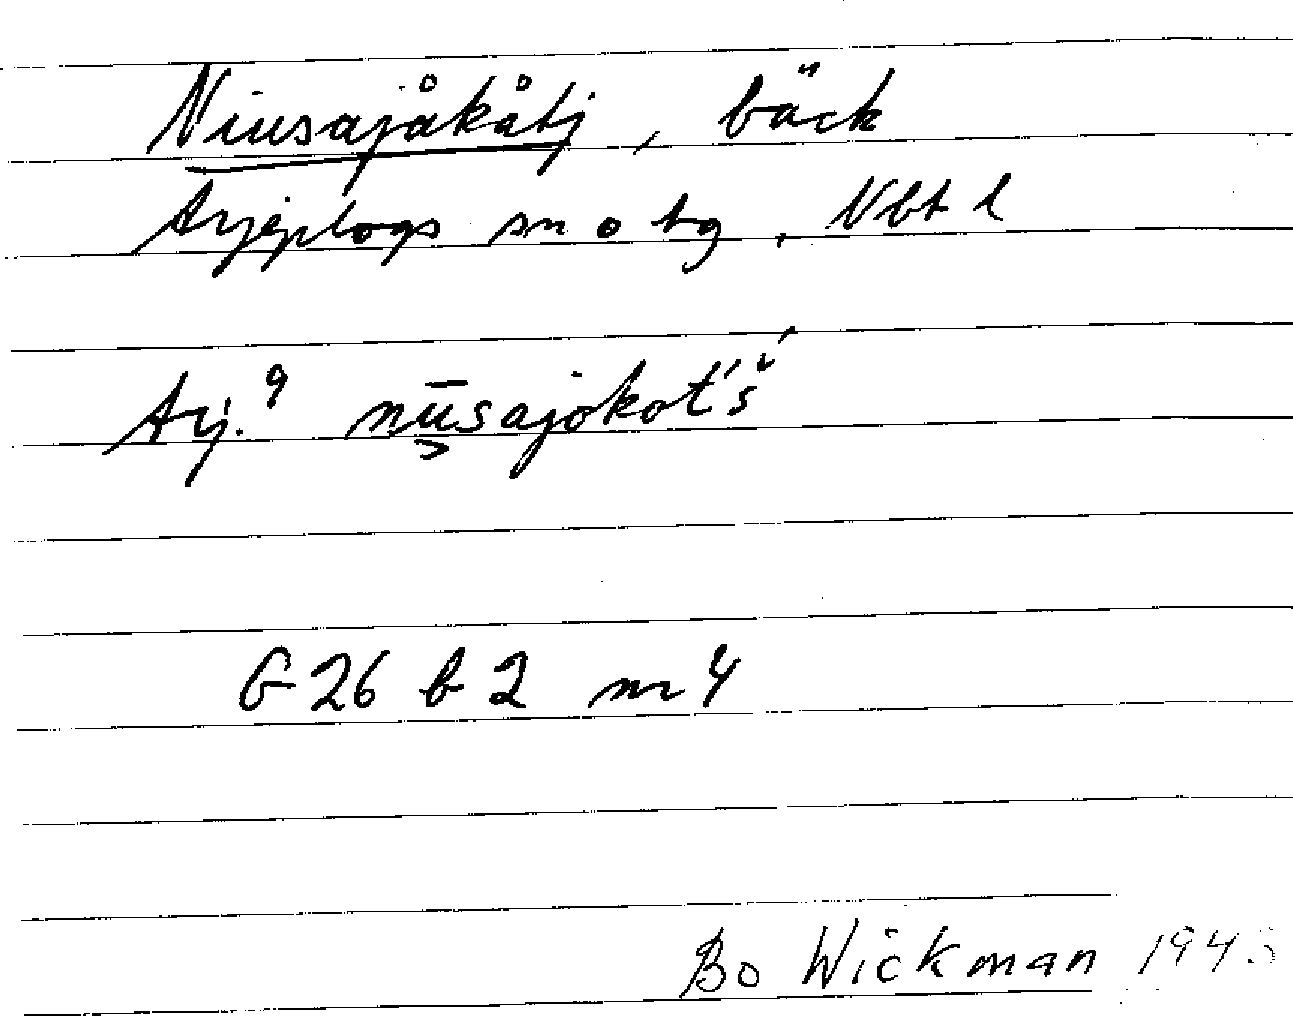 Niusajåkåtj, bäck
Arjeplogs sn o tg, Nbt l
Arj. 9
G 26 b 2 nr 4
Bo Wickman